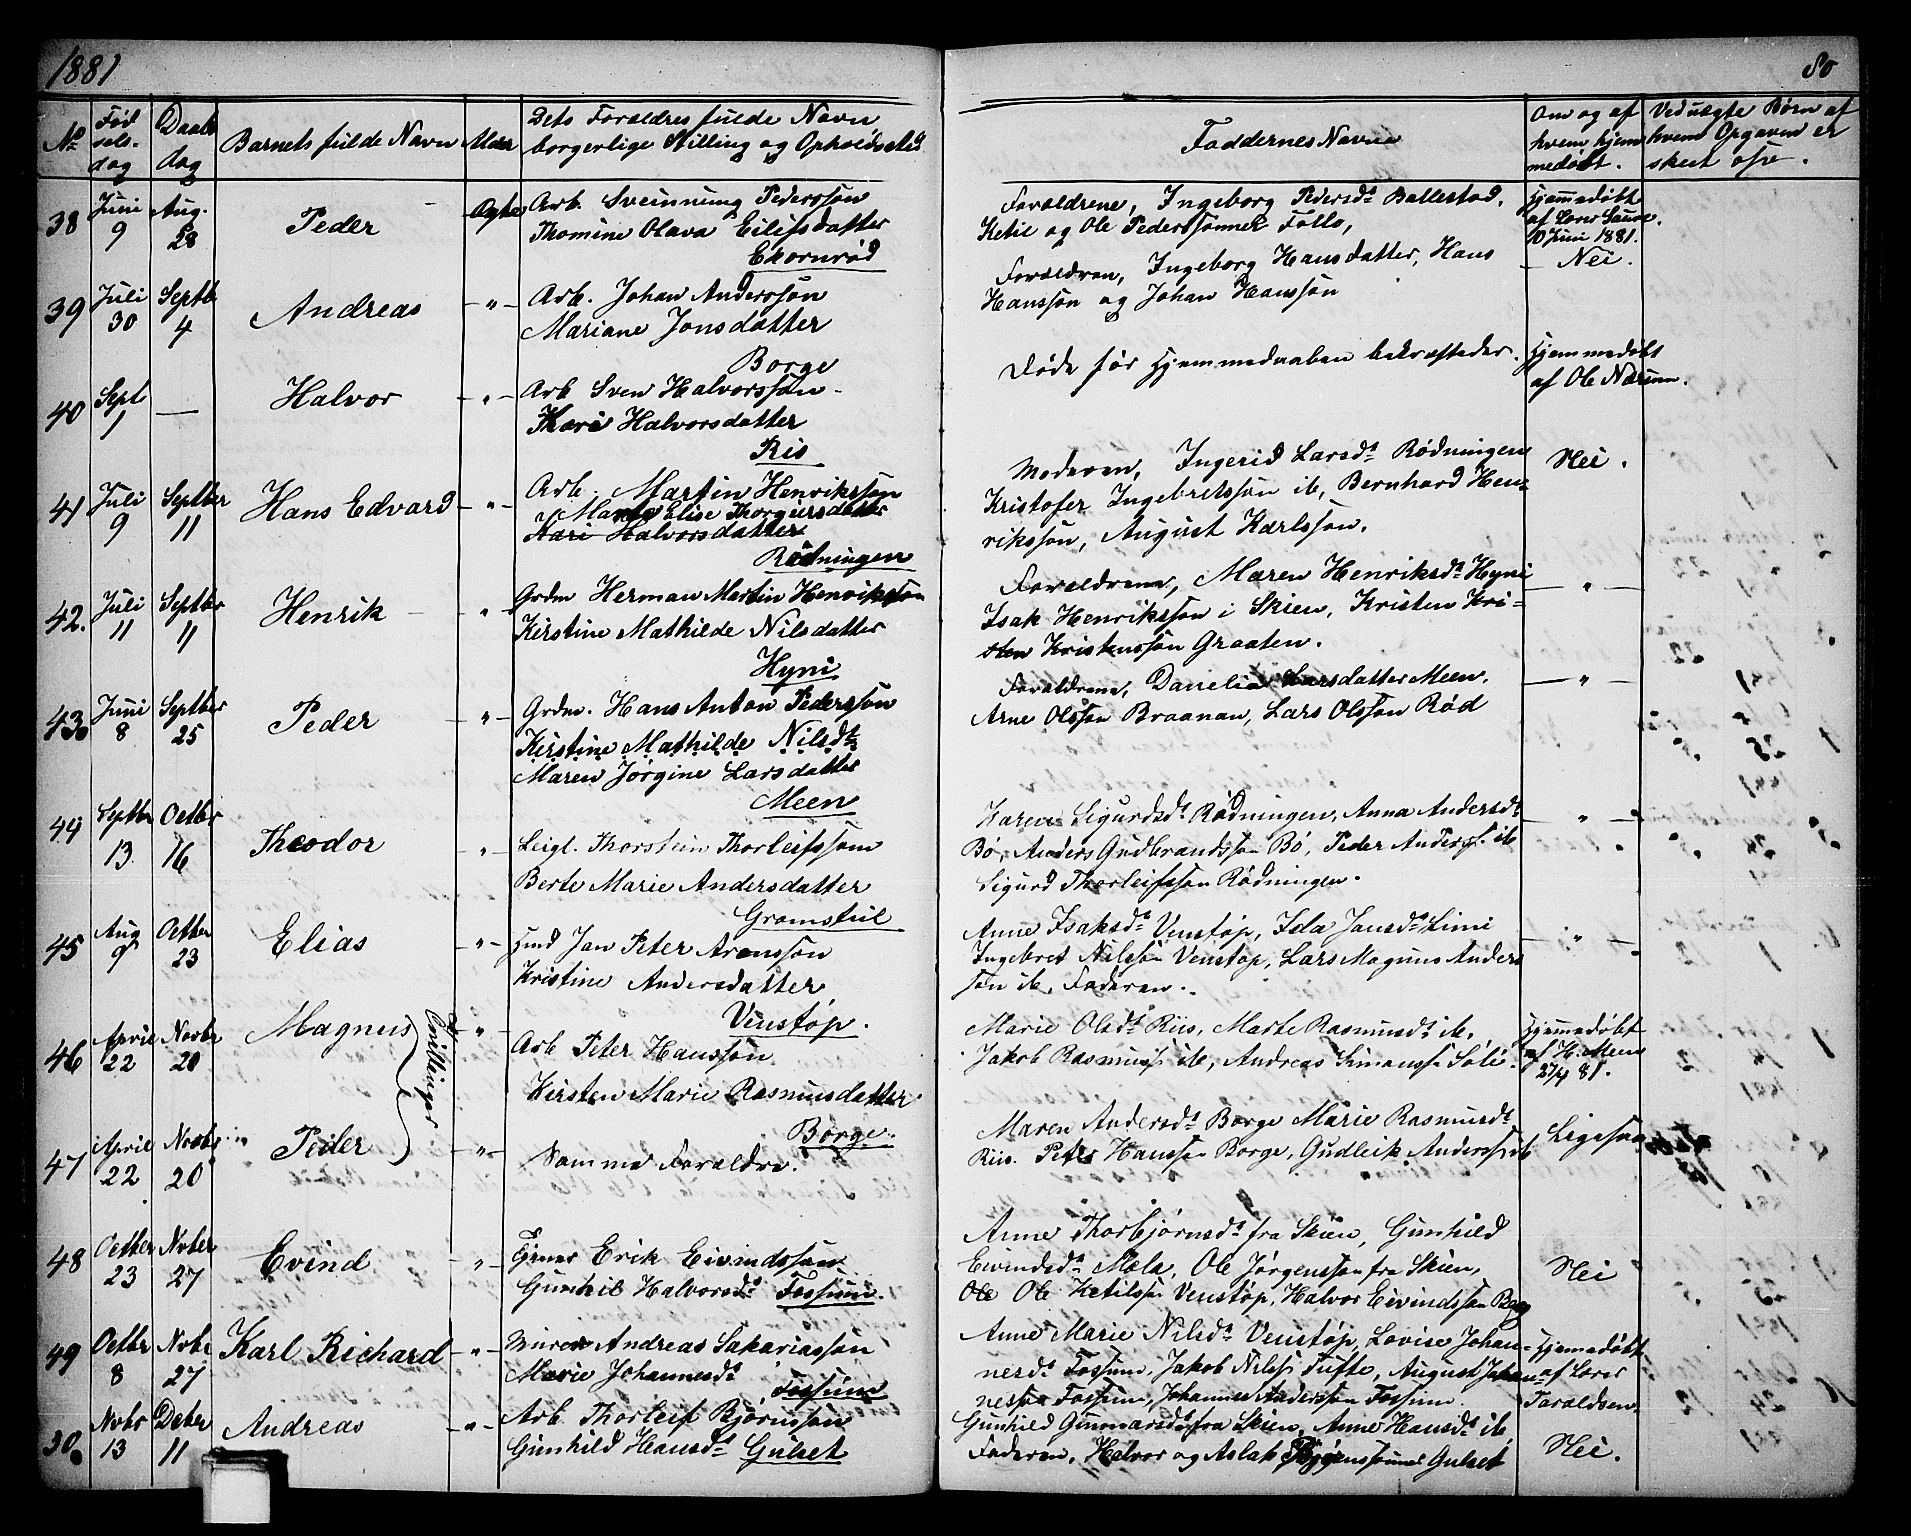 1881
80
No
Fød
sels-
dag
Daabs
dag
Barnets fulde Navn
Ægte
Dets Forældres fulde Navn
borgerlige Stilling og Opholdssted
Faddernes Navne
Om og af
hvem hjem
medøbt.
Ved uægte Børn af
hvem Opgaven er
skeet osv.
38
Juni
9
Aug.
28
Peder
Ægte
Arb. Sveinung Pederssøn
Thomine Olava Eilifsdatter
Ekornrød
Forældrene, Ingeborg Pedersdt Ballestad,
Ketil og Ole Pederssønner Follo,
Hjemmedøbt
af Lærer Saure
10 Juni 1881.
39
Juli
30
Septb
4
Andreas
- " -
Arb. Johan Anderssøn
Mariane Jonsdatter
Borge
Forældren, Ingeborg Hansdatter, Hans
Hanssøn og Johan Hanssøn
Nei.
40
Sept
1
—
Halvor
- " -
Arb Sven Halvorssøn
Kari Halvorsdatter
Ris
Døde før Hjemmedaaben bekræftedes.
Hjemmedøbt
af Ole Næsum.
41
Juli
9
Septber
11
Hans Edvard
- " -
Arb. Martin Henrikssøn
Marte Elise Thorgiersdatter
Kari Halvorsdatter
Rødningen
Moderen, Ingerid Larsdt Rødningen
Kristofer Ingebretssøn ib, Bernhard Hen-
rikssøn, August Karlssøn.
Nei.
42.
Juli
11
Septber
11
Henrik
"
Grdm Herman Martin Henrikssøn
Kirstine Mathilde Nilsdatter
Hyni
Forældrene, Maren Henriksdt Hyni
Isak Henrikssøn i Skien, Kristen Kri-
sten Kristenssøn Graaten.
- " -
43
Juni
8
Septber
25
Peder
- " -
Grdm. Hans Anton Pederssøn
Kirstine Mathilde Nilsdt
Maren Jørgine Larsdatter
Meen
Forældrene, Danelia Larsdatter Meen.
Arne Olssøn Braanan, Lars Olssøn Rød
- " -
44
Septbr
13
Octbr
16
Theodor
"
Leigl. Thorstein Thorleifssøn
Berte Marie Andersdatter
Gromstul
Karen Sigurdsdt Rødningen, Anna Andersdt
Bø, Anders Gudbrandssøn Bø, Peder Anderss. ib
Sigurd Thorleifssøn Rødningen.
- " -
45
Aug
9
Octbr
23
Elias
- " -
Hmd Jan Peter Arenssøn
Kristine Andersdatter
Venstøp.
Anne Isaksdt Venstøp, Ida Jansdt Limi
Ingebret Nilssøn Venstøp, Lars Magnus Anders
søn ib, Faderen.
- " -
46
April
22
Novbr
20
Magnus
Tvillinger
- " -
Arb Peter Hanssøn
Kirsten Marie Rasmusdatter
Borge.
Marie Olsdt Riis, Marte Rasmusdt ib.
Jakob Rasmuss ib, Andreas Simonss Søli
Hjemmedøbt
af H. Meen
27/4 81.
47
April
22
Novbr
20
Peder
- " -
Samme Forældre.
Maren Andersdt Borge Marie Rasmusdt
Riis. Peter Hanssøn Borge, Gudleik Anderss ib
Ligesaa
48
Octber
23
Novber
27
Evind
- " -
Erik Eivindssøn
Gunhil Halvorsdt Fossum.
Anne Thorbjørnsdt fra Skien, Gunhild
Eivindsdt Mæla, Ole Jørgenssøn fra Skien,
Ole Ole Ketilssøn Venstøp, Halvor Eivindssøn Berg
Nei
49
Octbr
8
Novbr
27
Karl Richard
- " -
Murer Andreas Sakariassøn
Marie Johannesdt
Fossum
Anne Marie Nilsdt Venstøp, Lovise Johan-
nesdt Fossum, Jakob Nilss Tufte, August Johan-
nessøn Fossum, Johannes Anderssøn Fossum
Hjemmedøbt
af Lærer
Taraldsen
30.
Novbr
13
Decber
11
Andreas
- " -
Arb Thorleif Bjørnssøn
Gunhild Hansdt Gulset
Gunhild Gunnarsdt fra Skien, Anne Hansdt ib,
Faderen, Halvor og Aslak Gulset
Nei.